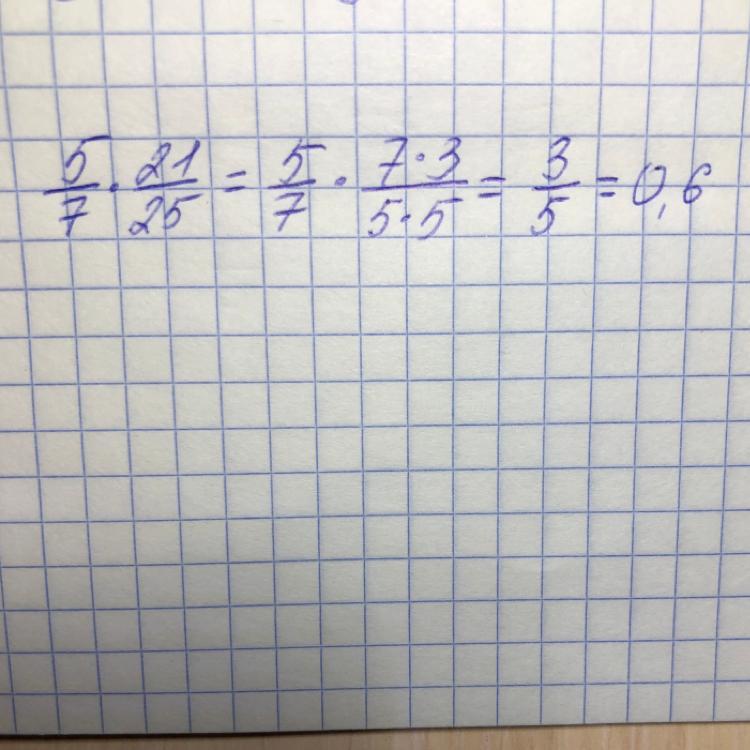 5/7 · 21/25 = 5/7 · 7·3/5·5 = 3/5 = 0,6